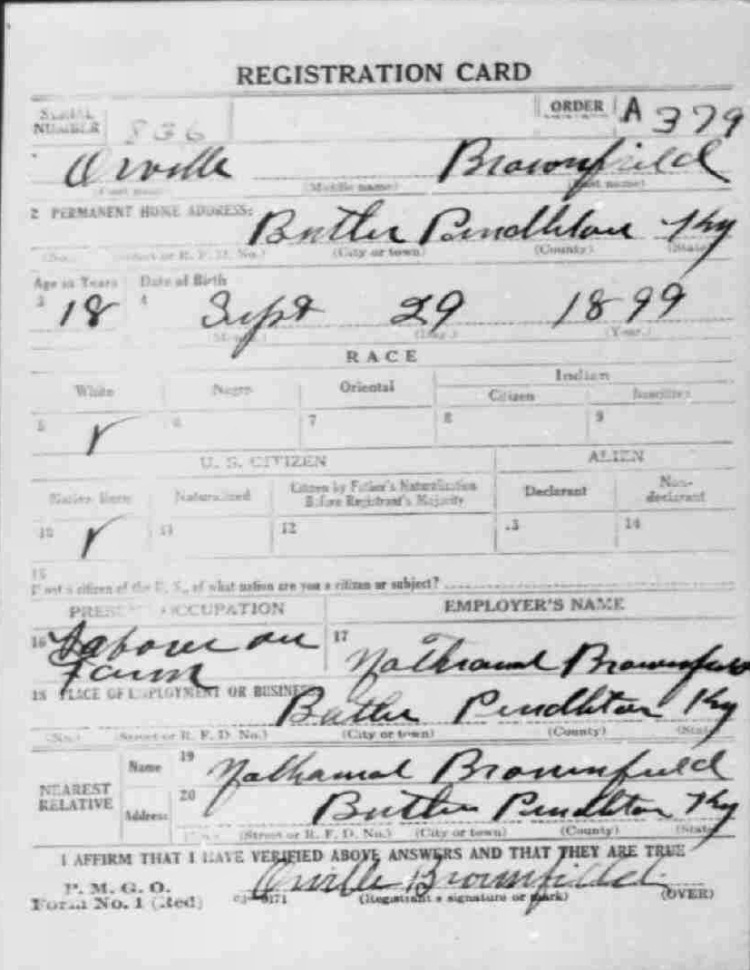 REGISTRATION CARD
SERIAL NUMBER 836 ORDER A 379
Orville Brownfield
(First name) (Middle name) (Last name)
2 PERMANENT HOME ADDRESS: Butler Pendleton Ky
(No.) (Street or R. F. D. No.) (City or town) (County) (State)
Age in Years Date of Birth
3 18 4 Sept 29 1899
(Month.) (Day.) (Year.)
RACE
White Negro Oriental Indian
Citizen
5 6 7 8 9
U. S. CITIZEN ALIEN
Native Born Naturalized Citizen by Father's Naturalization Before Registrant's Majority Declarant Non-declarant
10 11 12 13 14
15
If not a citizen of the U. S., of what nation are you a citizen or subject?
PRESENT OCCUPATION EMPLOYER'S NAME
16 Laborer on 17
Farm Nathanial Brownfield
18 PLACE OF EMPLOYMENT OR BUSINESS: Butler Pendleton Ky
(No.) (Street or R. F. D. No.) (City or town) (County) (State)
NEAREST RELATIVE Name 19 Nathanial Brownfield
Address 20 Butler Pendleton Ky
(No.) (Street or R. F. D. No.) (City or town) (County) (State)
I AFFIRM THAT I HAVE VERIFIED ABOVE ANSWERS AND THAT THEY ARE TRUE
P. M. G. O. Orville Brownfield
Form No. 1 (Red) (Registrant's signature or mark) (OVER)